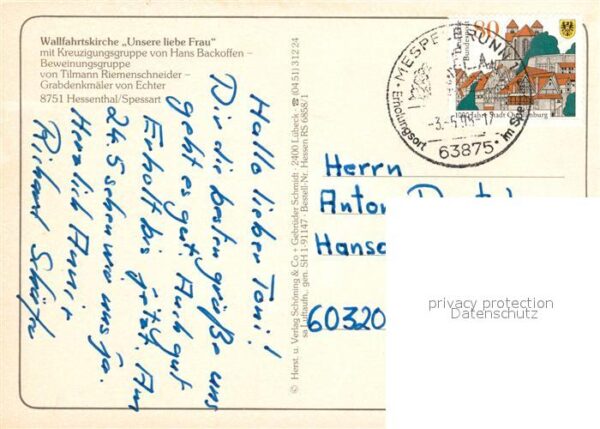 Wallfahrtskirche „Unsere liebe Frau"
mit Kreuzigungsgruppe von Hans Backoffen –
Beweinungsgruppe
von Tilmann Riemenschneider –
Grabdenkmäler von Echter
8751 Hessenthal/Spessart
Hallo lieber Toni!
Dir die besten grüße uns
geht es gut. Auch gut
Erholt bis jetzt. Am
24.5 sehen wir uns ja.
Herzlich Anni +
Richard
© Herst. u. Verlag Schöning & Co + Gebrüder Schmidt · 2400 Lübeck · ☎ (0451) 31224
sa Luftaufn., gen. SH 1-91147 · Bestell-Nr. Hessen RS 6858/1
80
Deutsche
Bundespost
1000 Jahre Stadt Quedlinburg
MESPELBRUNN
Erholungsort
im
63875
Herrn
Anton
60320
privacy protection
Datenschutz